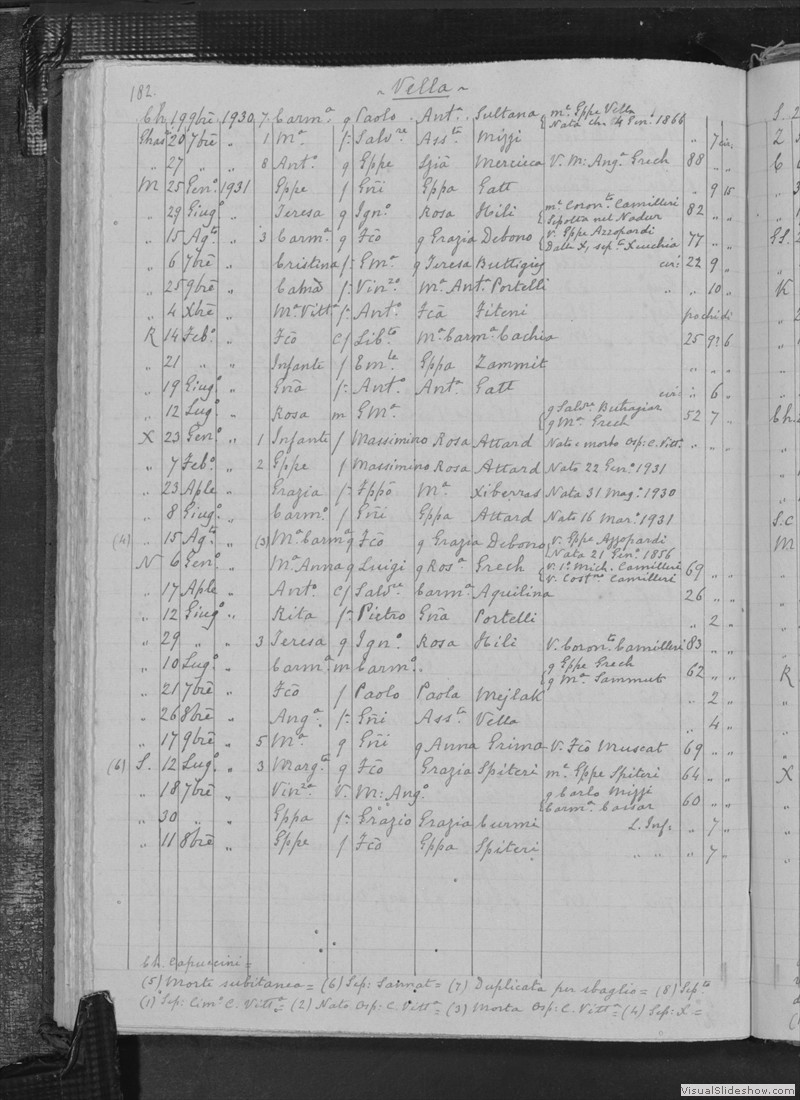 182.
~ Vella ~
Ch. 19 9bre 1930 7 Carmª g Paolo Antª Sultana mª Eppe Vella
Nata ch. 4 Genº 1866
Ghasª 20 7bre „ 1 Mª f: Salvre Assta Mizzi „ 7 cir.
„ 27 „ „ 8 Antº g Eppe Gjiã Mercieca V. M: Angª Grech 88 „ „
M 25 Genº 1931 Eppe f Gñi Eppa Gatt „ 9 15
„ 29 Giugº „ Teresa g Ignº Rosa Hili mª Coronto Camilleri 82 „ „
Sepolta nel Nadur
„ 15 Agto „ 3 Carmª g Fcõ g Grazia Debono V. Eppe Azzopardi 77 „ „
Dalla X, septa Xeuchia
„ 6 7bre „ Cristina f: Gmª g Teresa Buttigieg cir: 22 9 „
„ 25 9bre „ Catnã f: Vinzo Mª Antª Portelli „ 10 „
„ 4 Xbre „ Mª Vittª f: Antº Fcã Fiteni pochi di
R 14 Febº „ Fcõ C/ Libto Mª Carmª Cachia 25 92 6
„ 21 „ „ Infante f Emle Eppa Zammit „ „ „
„ 19 Giugº „ Gnã f: Antº Antª Gatt cir: „ 6 „
„ 12 Lugº „ Rosa m Gmª g Salvre Buttagiar 52 7 „
g Mª Grech
X 23 Genº „ 1 Infante f Massimino Rosa Attard Nato e morto Osp: C. Vittª „ „ „
„ 7 Febº „ 2 Eppe f Massimino Rosa Attard Nato 22 Genº 1931
„ 23 Aple „ Grazia f: Fppõ Mª Xiberras Nata 31 Magº 1930
„ 8 Giugº „ Carmº f Gñi Eppa Attard Nato 16 Marº 1931
(4) „ 15 Agto „ (3) Mª Carmª g Fcõ g Grazia Debono V. Eppe Azzopardi
Nata 21 Genº 1856
N 6 Genº „ Mª Anna g Luigi g Rosª Grech V. 1º Mich. Camilleri 69 „ „
V. Costno Camilleri
„ 17 Aple „ Antª C/ Salvre Carmª Aquilina 26 „ „
„ 12 Giugº „ Rita f: Pietro Gnã Portelli „ 2 „
„ 29 „ „ 3 Teresa g Ignº Rosa Hili V. Coronto Camilleri 83 „ „
„ 10 Lugº „ Carmª m Carmº. g Eppe Grech 62 „ „
g Mª Sammut
„ 21 7bre „ Fcõ f Paolo Paola Mejlak „ 2 „
„ 26 8bre „ Angª f: Gñi Assta Vella „ 4 „
„ 17 9bre „ 5 Mª g Gñi g Anna Grima V. Fcõ Muscat 69 „ „
(6) S. 12 Lugº „ 3 Margta g Fcõ Grazia Spiteri mª Eppe Spiteri 64 „ „
„ 18 7bre „ Vinza V. M: Angº g Carlo Mizzi 60 „ „
Carmª Caesar
„ 30 „ „ Eppa f: Grazio Grazia Curmi L. Inf: „ 7 „
„ 11 8bre „ Eppe f Fcõ Eppa Spiteri „ „ „ 7 „
Ch. Capuccini =
(5) Morte subitanea = (6) Sep: Sannat = (7) Duplicata per sbaglio = (8) Septo
(1) Sep: Cimº C. Vittª = (2) Nato Osp: C. Vittª = (3) Morta Osp: C. Vittª = (4) Sep: X. =
VisualSlideshow.com